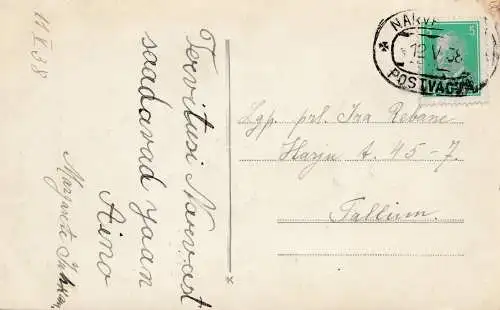 11 V. 38
Tervitusi Narvast
saadavad Jaan
Aino
Margareta
NARV
12 V 38
POSTVAG
5
Lgp. prl. Ira Rebane
Harju t. 45-7.
Tallinn.